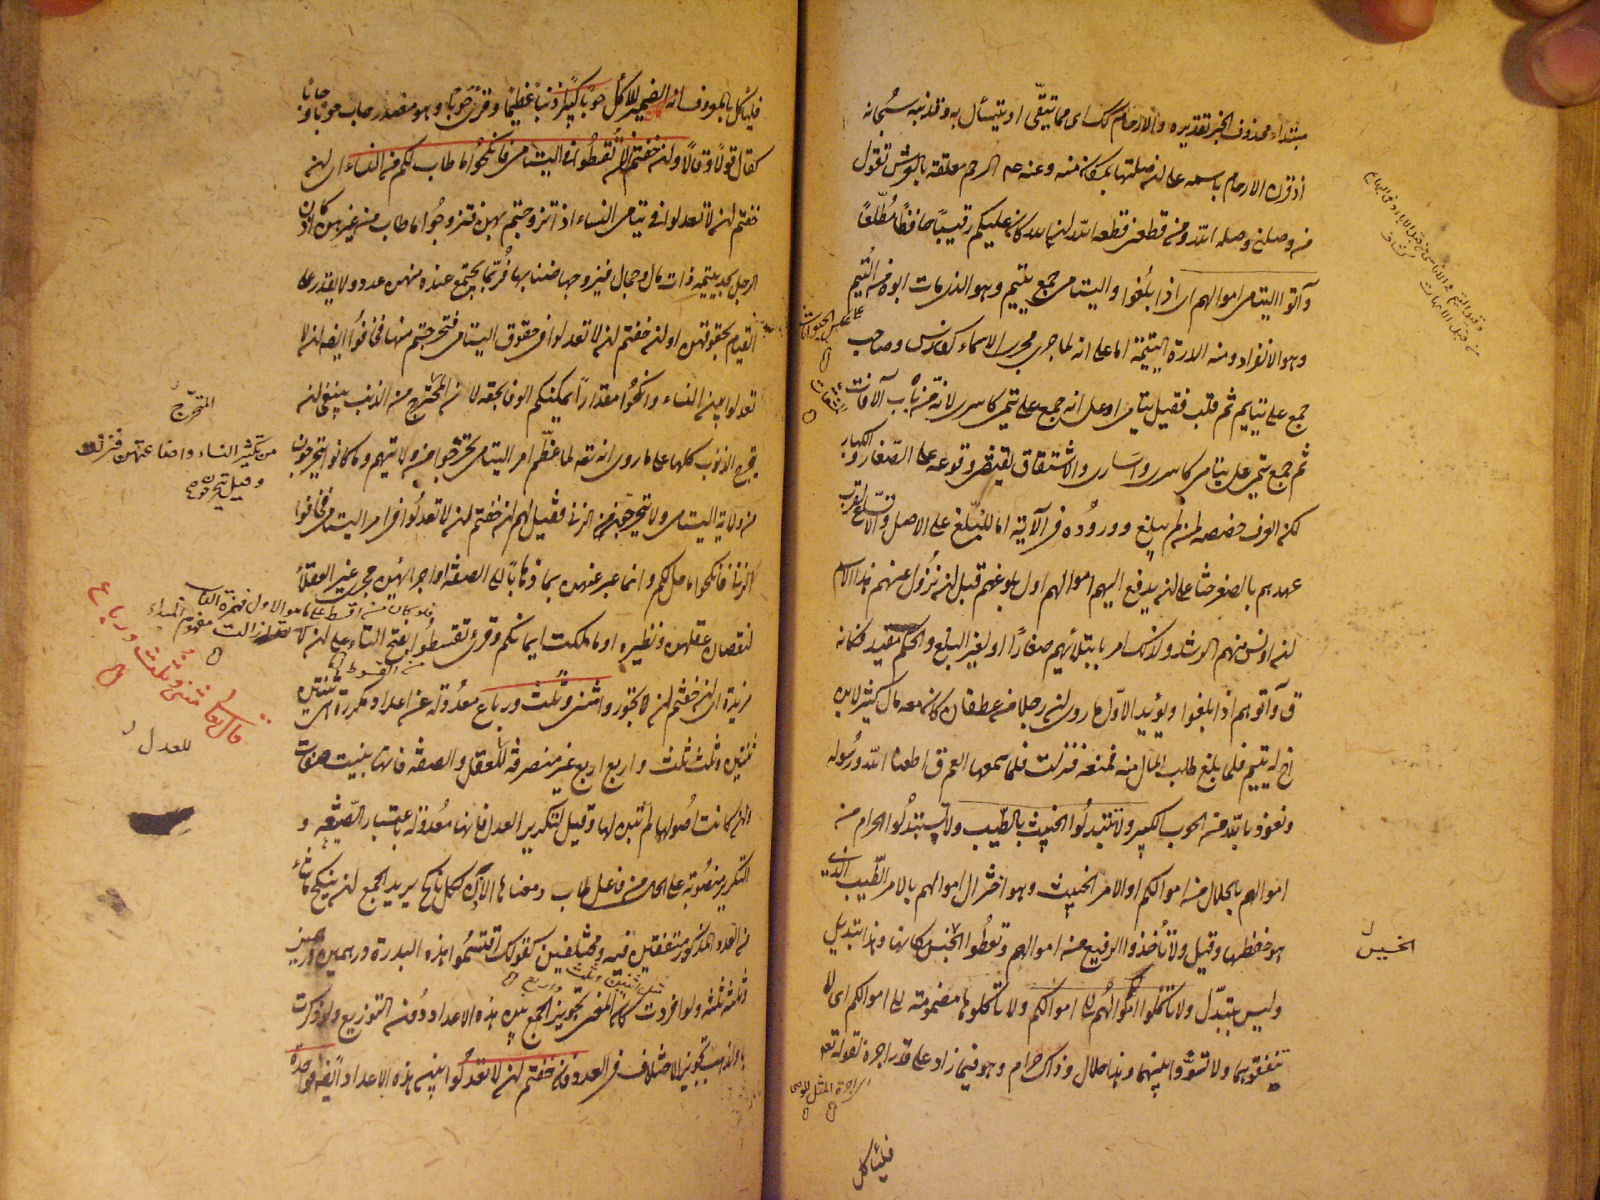 مبتداء محذوف الخبر تقديره والارحام كذلك اى مما يتقى او يتسأل به وقد نبه سبحانه
اذ قرن الارحام باسمه على ان صلتها بمكان منه وعنه عم الرحم معلقة بالعرش تقول
من وصلنى وصله الله ومن قطعنى قطعه الله ان الله كان عليكم رقيبا حافظا مطلعا
وآتوا اليتامى اموالهم اى اذا بلغوا واليتامى جمع يتيم وهو الذى مات ابوه من اليتم
وهو الانفراد ومنه الدرة اليتيمة اما على انه لما جرى مجرى الاسماء كفارس وصاحب
جمع على يتايم ثم قلب فقيل يتامى او على انه جمع على يتمى كاسرى لانه من باب الآفات
ثم جمع يتمى على يتامى كاسرى واسارى والاشتقاق يقتضى وقوعه على الصغار والكبار
لكن العرف خصصه بمن لم يبلغ ووروده فى الآية اما للبلغ على الاصل او الاتساع لقرب
عهدهم بالصغر حثا على ان يدفع اليهم اموالهم اول بلوغهم قبل ان يزول عنهم هذا الاسم
ان اونس منهم الرشد ولذلك امر بابتلائهم صغارا او لغير البلغ والحكم مقيد فكانه
ق وآتوهم اذا بلغوا ويؤيد الاول ما روى ان رجلا من غطفان كان معه مال كثير لابن
اخ له يتيم فلما بلغ طلب المال منه فمنعه فنزلت فلما سمعها العم ق اطعنا الله ورسوله
ونعوذ بالله من الحوب الكبير ولا تتبدلوا الخبيث بالطيب ولا تستبدلوا الحرام من
اموالهم بالحلال من اموالكم او الامر الخبيث وهو اختزال اموالهم بالامر الطيب الذى
هو حفظها وقيل ولا تأخذوا الرفيع من اموالهم وتعطوا الخبيث مكانها وهذا تبديل
وليس بتبدل ولا تأكلوا اموالهم الى اموالكم ولا تأكلوها مضمومة الى اموالكم اى لا
تنفقوهما ولا تسووا بينهما وهذا حلال وذاك حرام وهو فيما زاد على قدر اجره لقوله تعه
على عكس الحيوانات
الخسيس
اى اجرة المثل للوصى
فليأكل
فليأكل بالمعروف انه الضمير للاكل كان حوبا كبيرا ذنبا عظيما وقرئ حوبا وهو مصدر حاب حوبا وحابا
كقال قولا وقالا وان خفتم الا تقسطوا فى اليتامى فانكحوا ما طاب لكم من النساء اى ان
خفتم ان لا تعدلوا فى يتامى النساء اذا تزوجتم بهن فتزوجوا ما طاب من غيرهن اذ كان
الرجل يجد يتيمة ذات مال وجمال فيتزوجها ضنا بها فربما يجتمع عنده منهن عدد ولا يقدر على
القيام بحقوقهن او ان خفتم ان لا تعدلوا فى حقوق اليتامى فتحرجتم منها فخافوا ايضا ان لا
تعدلوا بين النساء وانكحوا مقدارا يمكنكم الوفا بحقه لان المتحرج من الذنب ينبغى ان
يتحرج الذنوب كلها على ما روى انه تعه لما عظم امر اليتامى تحرجوا من ولايتهم وما كانوا يتحرجون
من ولاية اليتامى ولا يتحرجون من الزنى فقيل لهم ان خفتم ان لا تعدلوا فى امر اليتامى فخافوا
الزنى فانكحوا ما حل لكم وانما عبر عنهن بما ذهابا الى الصفة او اجرائهن مجرى غير العقلاء
لنقصان عقلهن ونظيره او ما ملكت ايمانكم وقرئ تقسطوا بفتح التاء على ان لا
مزيدة اى ان خفتم ان تجوروا مثنى وثلث ورباع معدولة عن اعداد مكررة هى ثنتين
ثنتين وثلث ثلث واربع اربع غير منصرفة للعدل والصفة فانها بنيت صفات
وان كانت اصولها لم تبن لها وقيل لتكرير العدل فانها معدولة باعتبار الصيغة و
التكرير منصوبة على الحال من فاعل طاب ومعناها الاذن لكل ناكح يريد الجمع ان ينكح ما شاء
من العدد المذكور متفقين فيه ومختلفين كقولك اقتسموا هذه البدرة درهمين درهمين
وثلثة ثلثة ولو افردت كان المعنى تجويز الجمع بين هذه الاعداد دون التوزيع ولو ذكرت
باو لذهب تجويز الاختلاف فى العدد فان خفتم ان لا تعدلوا بين هذه الاعداد ايضا فواحدة
المتحرج
من تكثير النساء واضاعتهن فنزلت
وقيل
قال تعا مثنى وثلث ورباع
للعدل